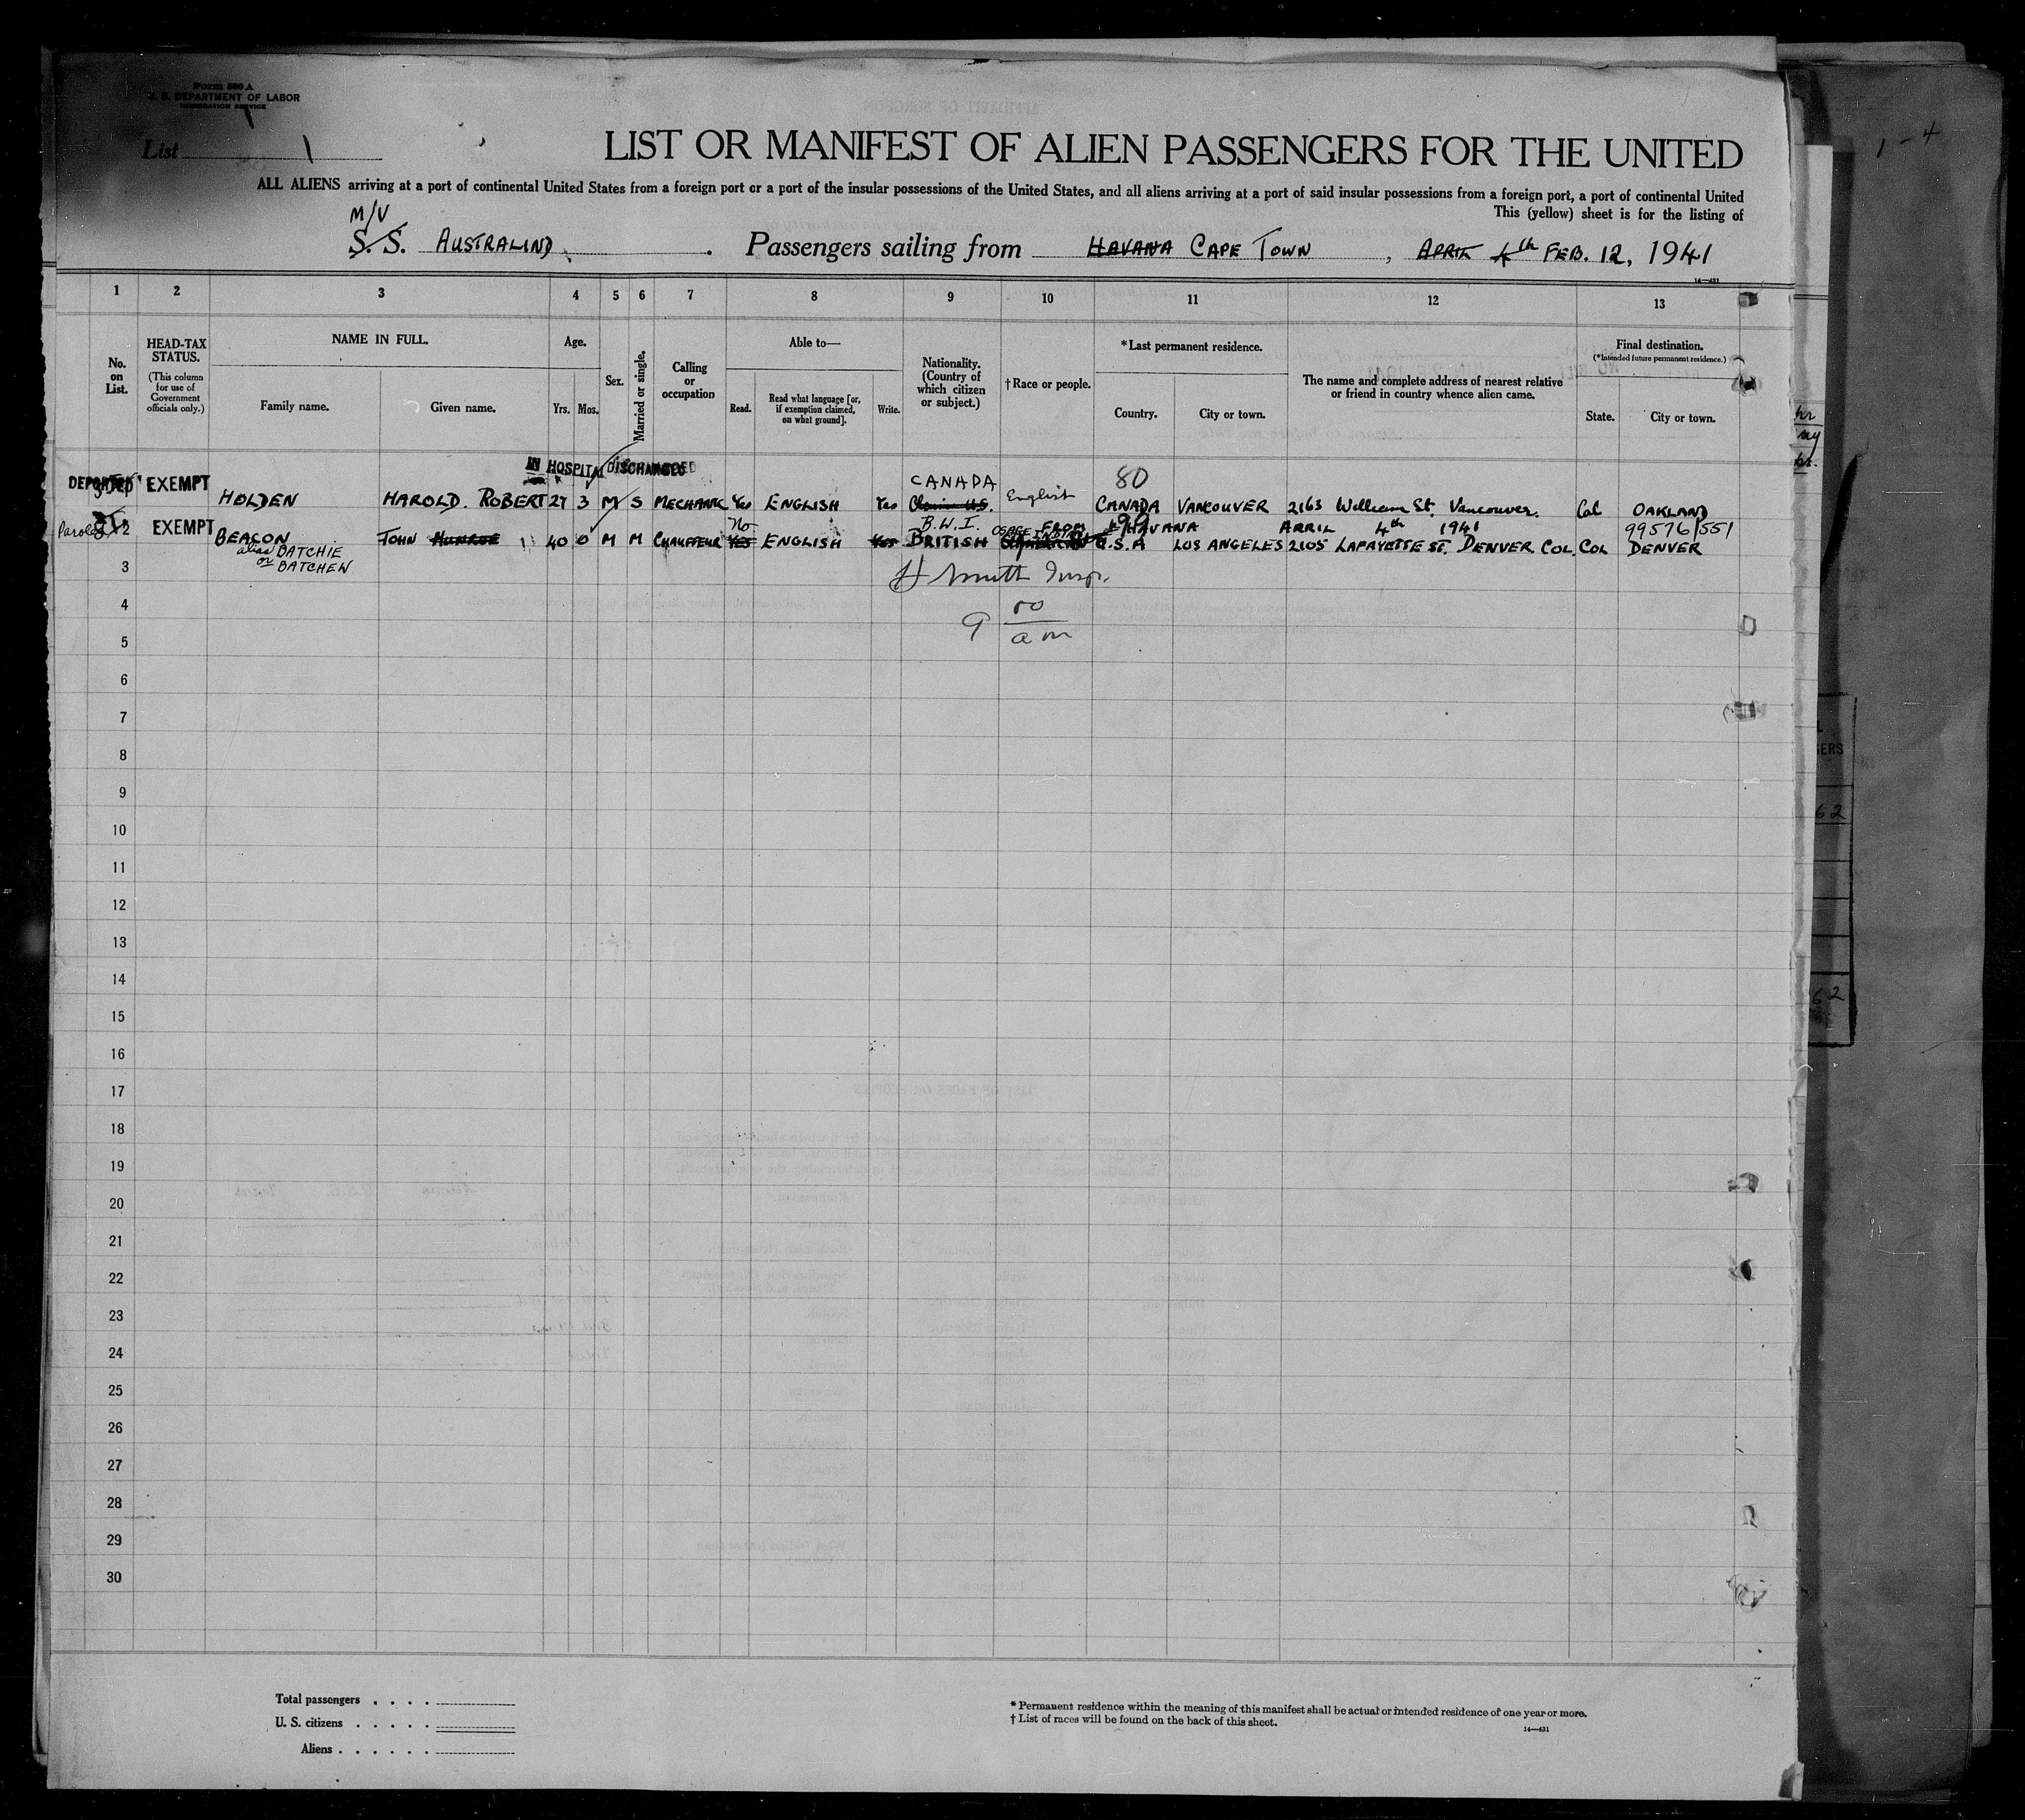 Form 500 A
U. S. DEPARTMENT OF LABOR
IMMIGRATION SERVICE
List 1
1-4
LIST OR MANIFEST OF ALIEN PASSENGERS FOR THE UNITED
ALL ALIENS arriving at a port of continental United States from a foreign port or a port of the insular possessions of the United States, and all aliens arriving at a port of said insular possessions from a foreign port, a port of continental United
This (yellow) sheet is for the listing of
M/V
S. S. AUSTRALIND. Passengers sailing from HAVANA CAPE TOWN, APRIL 4th FEB. 12, 1941
14—431
1 2 3 4 5 6 7 8 9 10 11 12 13
No. on List.
HEAD-TAX STATUS. (This column for use of Government officials only.)
NAME IN FULL.
Family name. Given name.
Age.
Yrs. Mos.
Sex.
Married or single.
Calling or occupation
Able to—
Read. Read what language [or, if exemption claimed, on what ground]. Write.
Nationality. (Country of which citizen or subject.)
†Race or people.
*Last permanent residence.
Country. City or town.
The name and complete address of nearest relative or friend in country whence alien came.
Final destination.
(*Intended future permanent residence.)
State. City or town.
IN HOSPITAL DISCHARGED
CANADA 80
DEPORTED EXEMPT HOLDEN HAROLD. ROBERT 27 3 M S MECHANIC Yes ENGLISH Yes Claim U.S. English CANADA VANCOUVER 2163 William St. Vancouver. Cal OAKLAND
No B.W.I. FROM HAVANA APRIL 4th 1941 99576/551
Paroled 2 EXEMPT BEACON JOHN MUNROE 40 0 M M CHAUFFEUR YES ENGLISH Yes BRITISH U.S.A LOS ANGELES 2105 LAFAYETTE ST. DENVER COL. COL DENVER
alias BATCHIE
or BATCHEW
3
H Smith Insp.
4
9 00
am
5
6
7
8
9
10
11
12
13
14
15
16
17
18
19
20
21
22
23
24
25
26
27
28
29
30
Total passengers . . . .
U. S. citizens . . . . .
Aliens . . . . . .
* Permanent residence within the meaning of this manifest shall be actual or intended residence of one year or more.
† List of races will be found on the back of this sheet.
14—431